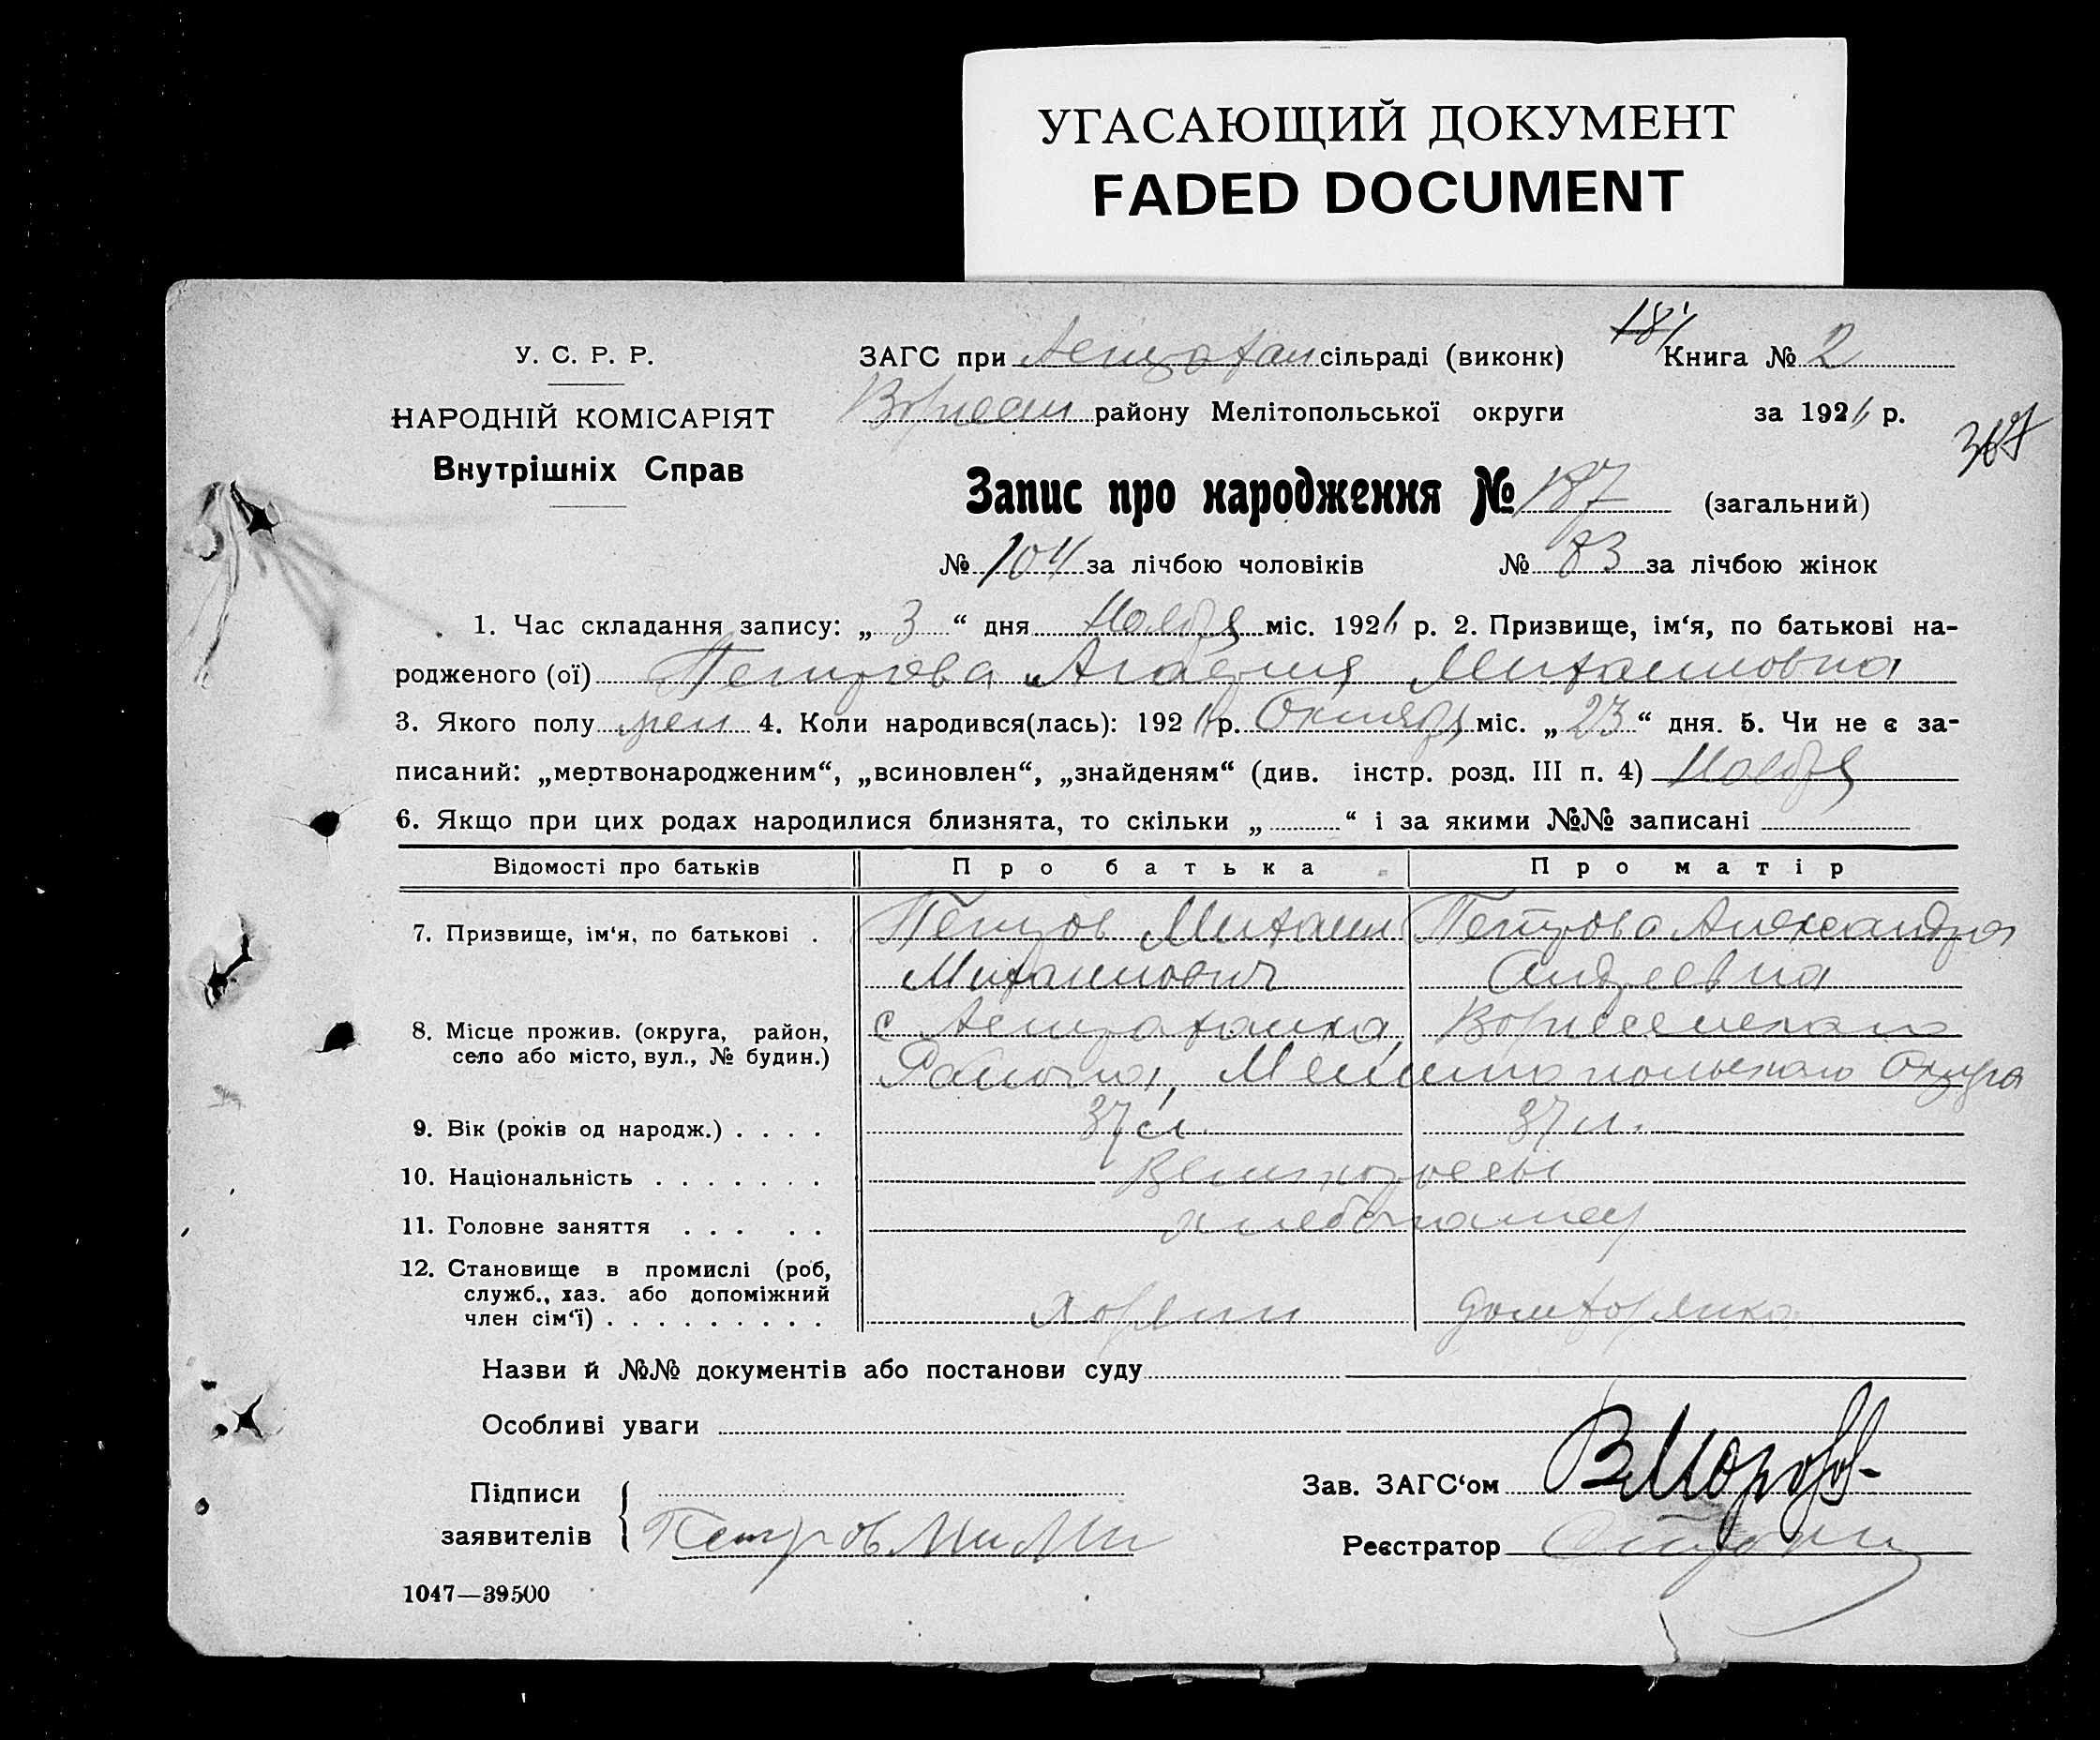 УГАСАЮЩИЙ ДОКУМЕНТ
FADED DOCUMENT
У. С. Р. Р.
НАРОДНІЙ КОМІСАРІЯТ
Внутрішніх Справ
ЗАГС при сільраді (виконк)
Книга № 2
району Мелітопольської округи
за 192 р.
367
Запис про народження № 187 (загальний)
№ 104 за лічбою чоловіків № 83 за лічбою жінок
1. Час складання запису: „ 3 “ дня Ноября міс. 192 р. 2. Призвище, ім‘я, по батькові на-
родженого (ої) Петрова Михаиловна
3. Якого полу жен 4. Коли народився(лась): 192 р. Октября міс. „ 23 “ дня. 5. Чи не є за-
писаний: „мертвонародженим“, „всиновлен“, „знайденям“ (див. інстр. розд. III п. 4) Ноября
6. Якщо при цих родах народилися близнята, то скільки „ “ і за якими №№ записані
Відомості про батьків Про батька Про матір
7. Призвище, ім‘я, по батькові . Петров Михаил Петрова Александра
Михаилович Андреевна
8. Місце прожив. (округа, район, с Астраханка, Вознесенского
село або місто, вул., № будин.) Района, Мелитопольского Округа
9. Вік (років од народж.) . . . . 37 л. 37 л.
10. Національність . . . . . . . Великороссы
11. Головне заняття . . . . . хлебопашец
12. Становище в промислі (роб,
служб., хаз. або допоміжний
член сім‘ї) . . . . . . . . . хозяин домхозяйка
Назви й №№ документів або постанови суду
Особливі уваги
Підписи
заявителів Петров
Зав. ЗАГС‘ом
Реєстратор
1047—39500